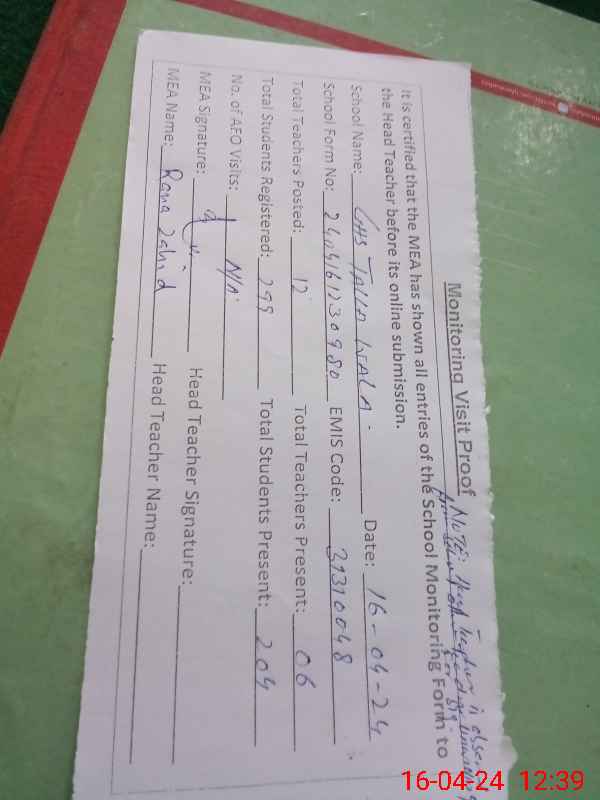 Monitoring Visit Proof
NOTE: Head Teacher is
It is certified that the MEA has shown all entries of the School Monitoring Form to
the Head Teacher before its online submission.
School Name: GHS TALLA WALA. Date: 16-04-24
School Form No: EMIS Code: 31310048
Total Teachers Posted: 12 Total Teachers Present: 06
Total Students Registered: 299 Total Students Present: 204
No. of AFO Visits: N/A
MEA Signature: Head Teacher Signature:
MEA Name: Rana Zahid Head Teacher Name:
16-04-24 12:39